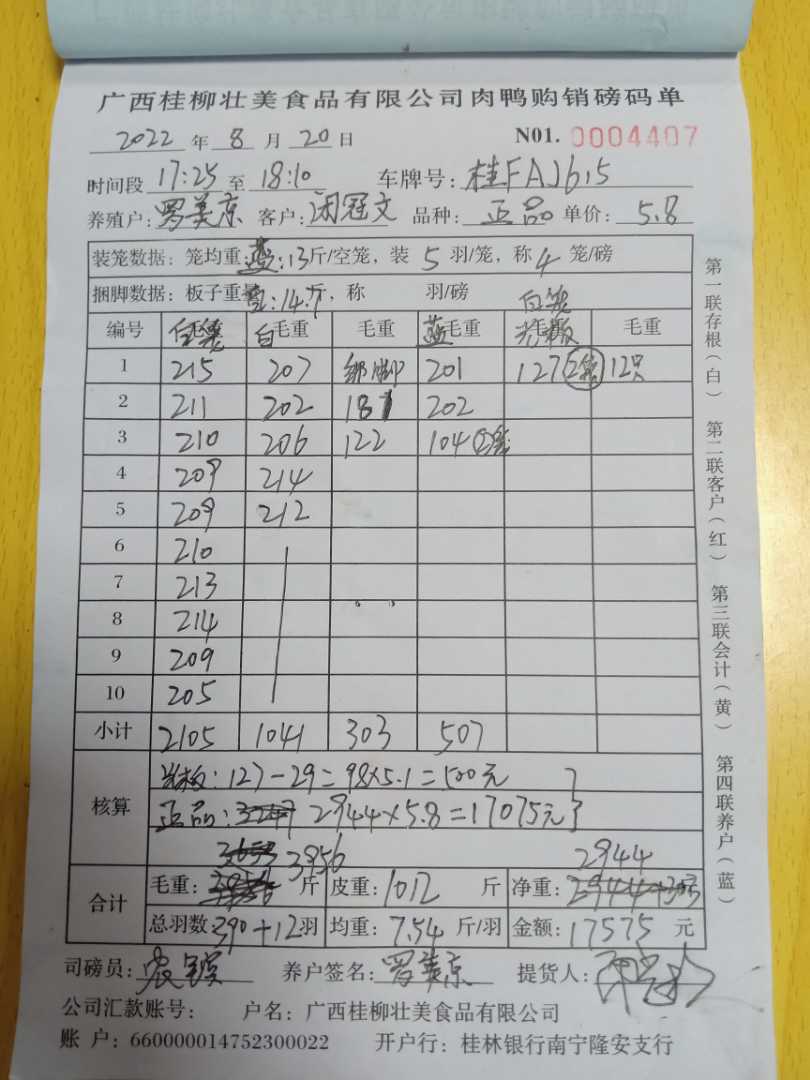 广西桂柳壮美食品有限公司肉鸭购销磅码单
2022 年 8 月 20 日 N01. 0004407
时间段 17:25 至 18:10 车牌号: 桂FAJ615
养殖户: 罗美京 客户: 闭冠文 品种: 正品 单价: 5.8
装笼数据: 笼均重 蓝:13斤/空笼, 装 5 羽/笼, 称 4 笼/磅
捆脚数据: 板子重量 14斤, 称 羽/磅
白笼
编号 白笼 白毛重 毛重 蓝毛重 光板 毛重
1 215 207 绑脚 201 127 2笼 12只
2 211 202 181 202
3 210 206 122 104 2笼
4 209 214
5 209 212
6 210
7 213
8 214
9 209
10 205
小计 2105 1041 303 507
核算 光板: 127-29=98×5.1=500元
正品: 2944×5.8=17075元
3956 2944
合计 毛重: 斤 皮重: 1012 斤 净重:
总羽数 390+12羽 均重: 7.54 斤/羽 金额: 17575 元
司磅员: 养户签名: 罗美京 提货人:
公司汇款账号: 户名: 广西桂柳壮美食品有限公司
账 户: 660000014752300022 开户行: 桂林银行南宁隆安支行
第一联存根(白) 第二联客户(红) 第三联会计(黄) 第四联养户(蓝)